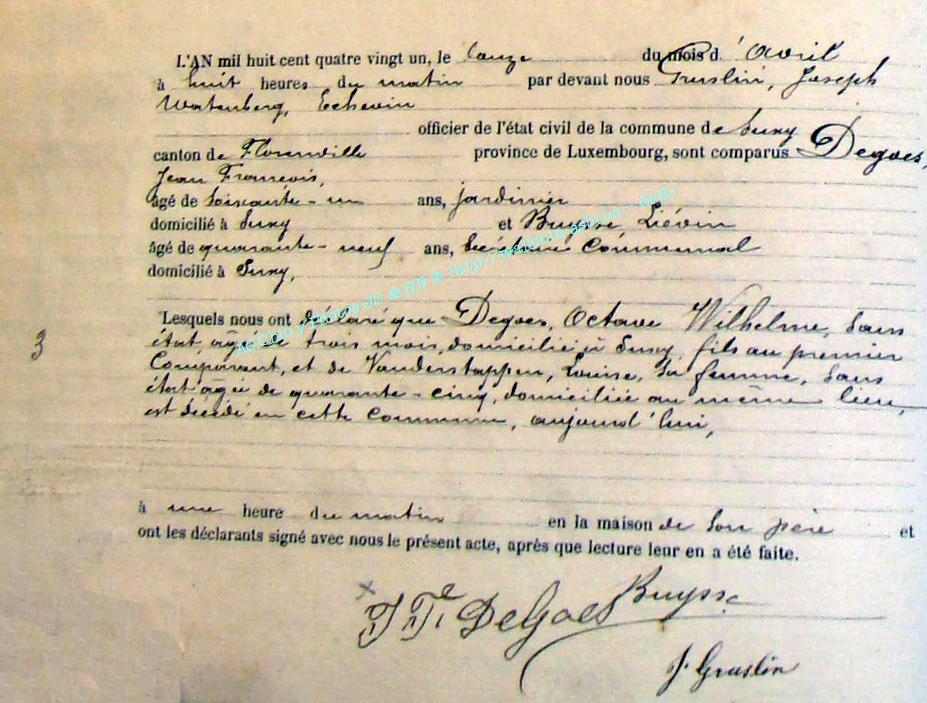 L'AN mil huit cent quatre vingt un, le onze du mois d'Avril
à huit heures du matin par devant nous Gruslin, Joseph
Watenberg, Echevin
officier de l'état civil de la commune de Suxy
canton de Florenville province de Luxembourg, sont comparus Degoes,
Jean François,
âgé de Soixante-un ans, jardinier
domicilié à Suxy et Buysse Liévin
âgé de quarante-neuf ans, Secrétaire Communal
domicilié à Suxy,
Lesquels nous ont déclaré que Degoes, Octave Wilhelme, Sans
3
état, âgé de trois mois, domicilié à Suxy, fils au premier
Comparant, et de Vanderstappen, Louise, Sa femme, Sans
état âgée de quarante-cinq, domiciliée au même lieu,
est décédé en cette Commune, aujourd'hui,
à une heure du matin en la maison de Son père et
ont les déclarants signé avec nous le présent acte, après que lecture leur en a été faite.
DeGoes Buysse
J. Gruslin